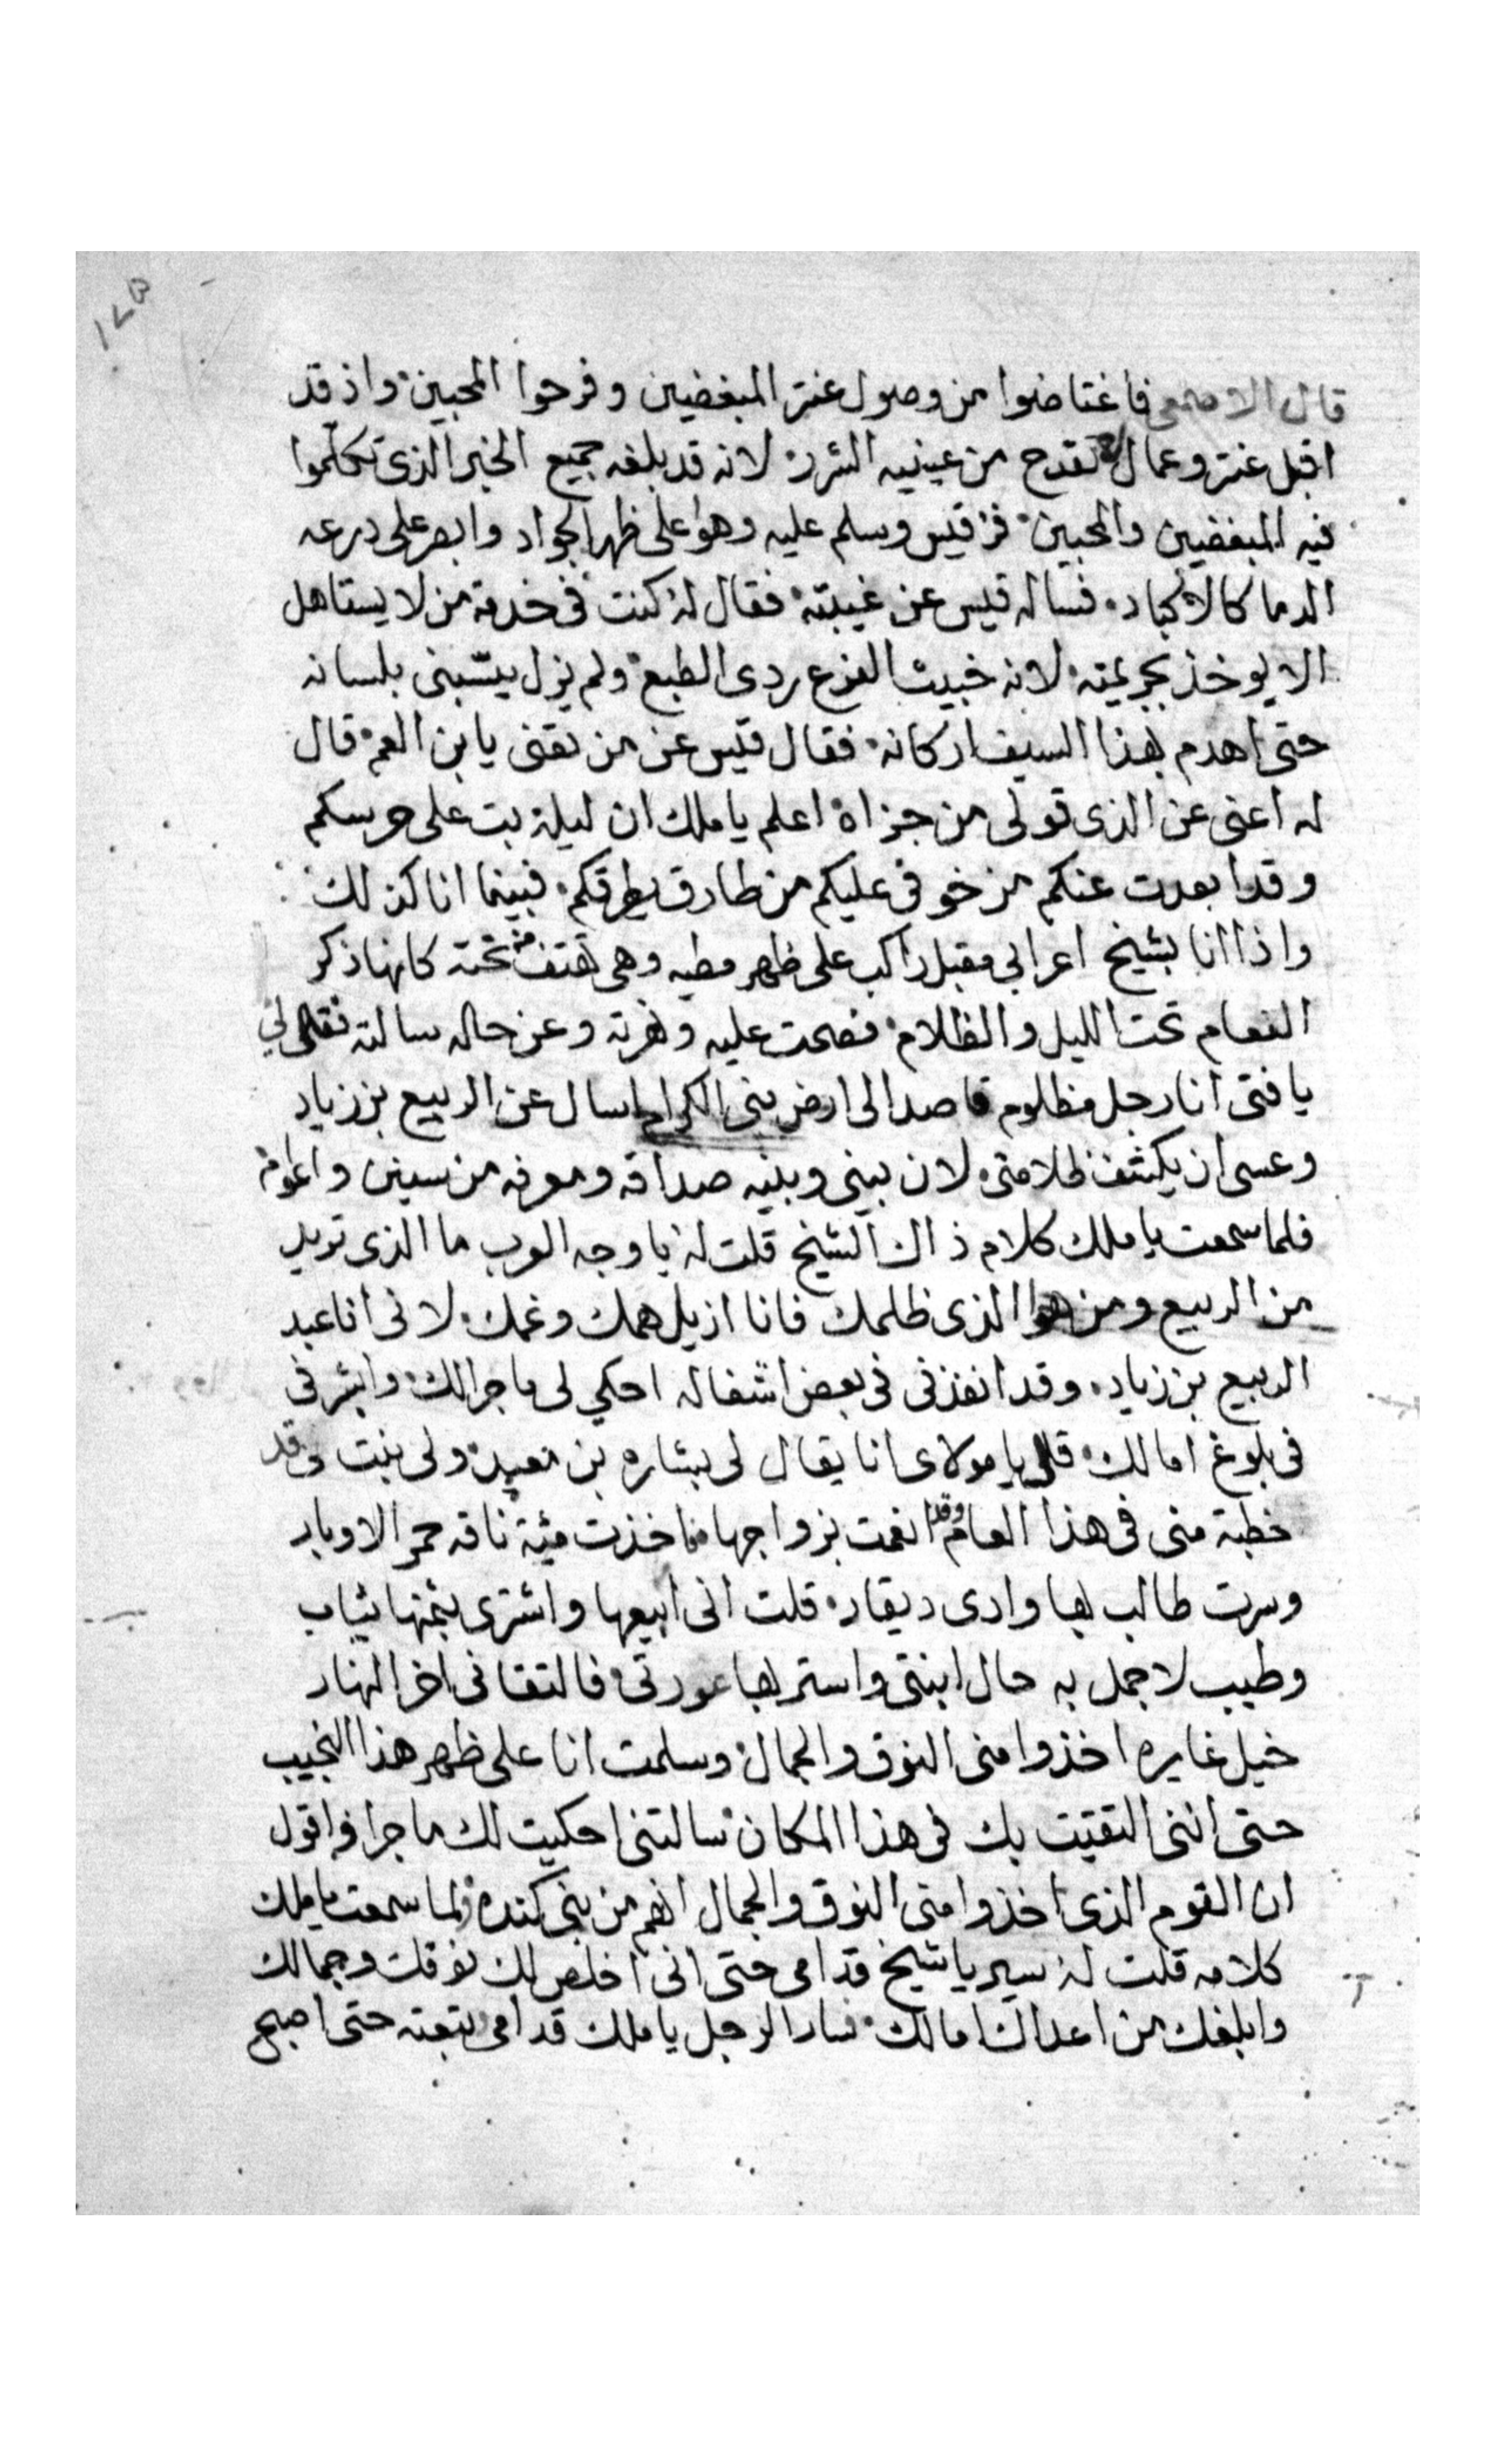 قال الاصمعي فاغتاضوا من وصول عنتر المبغضين وفرحوا المحبين واذ قد
اقبل عنتر وعمال تقدح من عينيه الشرر لانه قد بلغه جميع الخبر الذى تكلموا
فيه المبغضين والمحبين فز قيس وسلم عليه وهوا على ظهر الجواد وابصر على درعه
الدما كالاكباد فساله قيس عن غيبته فقال له كنت فى خدمة من لا يستاهل
الا يوخذ بجريمته لانه خبيث الفرع ردى الطبع ولم يزل يسّبنى بلسانه
حتى اهدم بهذا السيف اركانه فقال قيس عن من تعنى يابن العم قال
له اعنى عن الذى تولى من جزاه اعلم يا ملك ان ليلة بت على حرسكم
وقد ابعدت عنكم من خوفى عليكم من طارق يطرقكم فبينما انا كذلك
واذا انا بشيخ اعرابي مقبل راكب على ظهر مطيه وهى تهتف من تحته كانها ذكر
النعام تحت الليل والظلام فصحت عليه ونهرته وعن حاله سالته فقال لي
يا فتى انا رجل مظلوم قاصد الى ارض بنى الكرام اسال عن الربيع بن زياد
وعسى ان يكشف ظلامتى لان بينى وبينه صداقه ومعرفه من سنين واعوام
فلما سمعت يا ملك كلام ذاك الشيخ قلت له يا وجه العرب ما الذى تريد
من الربيع ومن هوا الذى ظلمك فانا ازيل همك وغمك لانى انا عبد
الربيع بن زياد وقد انفذنى فى بعض اشغاله احكي لى ما جرا لك وابشر فى
فى بلوغ امالك قال يا مولاى انا يقال لى بشاره بن معبد ولى بنت وقد
خطبة منى فى هذا العام وقد انعمت بزواجها فاخذت مئة ناقه حمر الاوبار
وسرت طالب بها وادى ديقار قلت انى ابيعها واشترى بثمنها ثياب
وطيب لاجمل به حال ابنتى واستر بها عورتى فالتقانى اخر النهار
خيل غايره اخذوا منى النوق والجمال وسلمت انا على ظهر هذا النجيب
حتى اننى التقيت بك فى هذا المكان سالتنى احكيت لك ما جرا واقول
ان القوم الذى اخذوا منى النوق والجمال انهم من بنى كنده فلما سمعت يا ملك
كلامه قلت له سير يا شيخ قدامى حتى انى اخلص لك نوقك وجمالك
وابلغك من اعداك امالك فسار الرجل يا ملك قدامى تبعته حتى اصبح